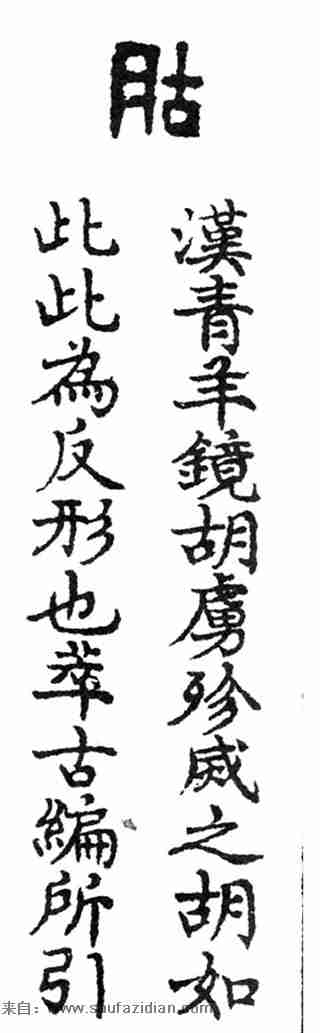 𦙶
漢青羊鏡胡虜殄烕之胡如
此此為反形也萃古編所引
来自：www.shufazidian.com